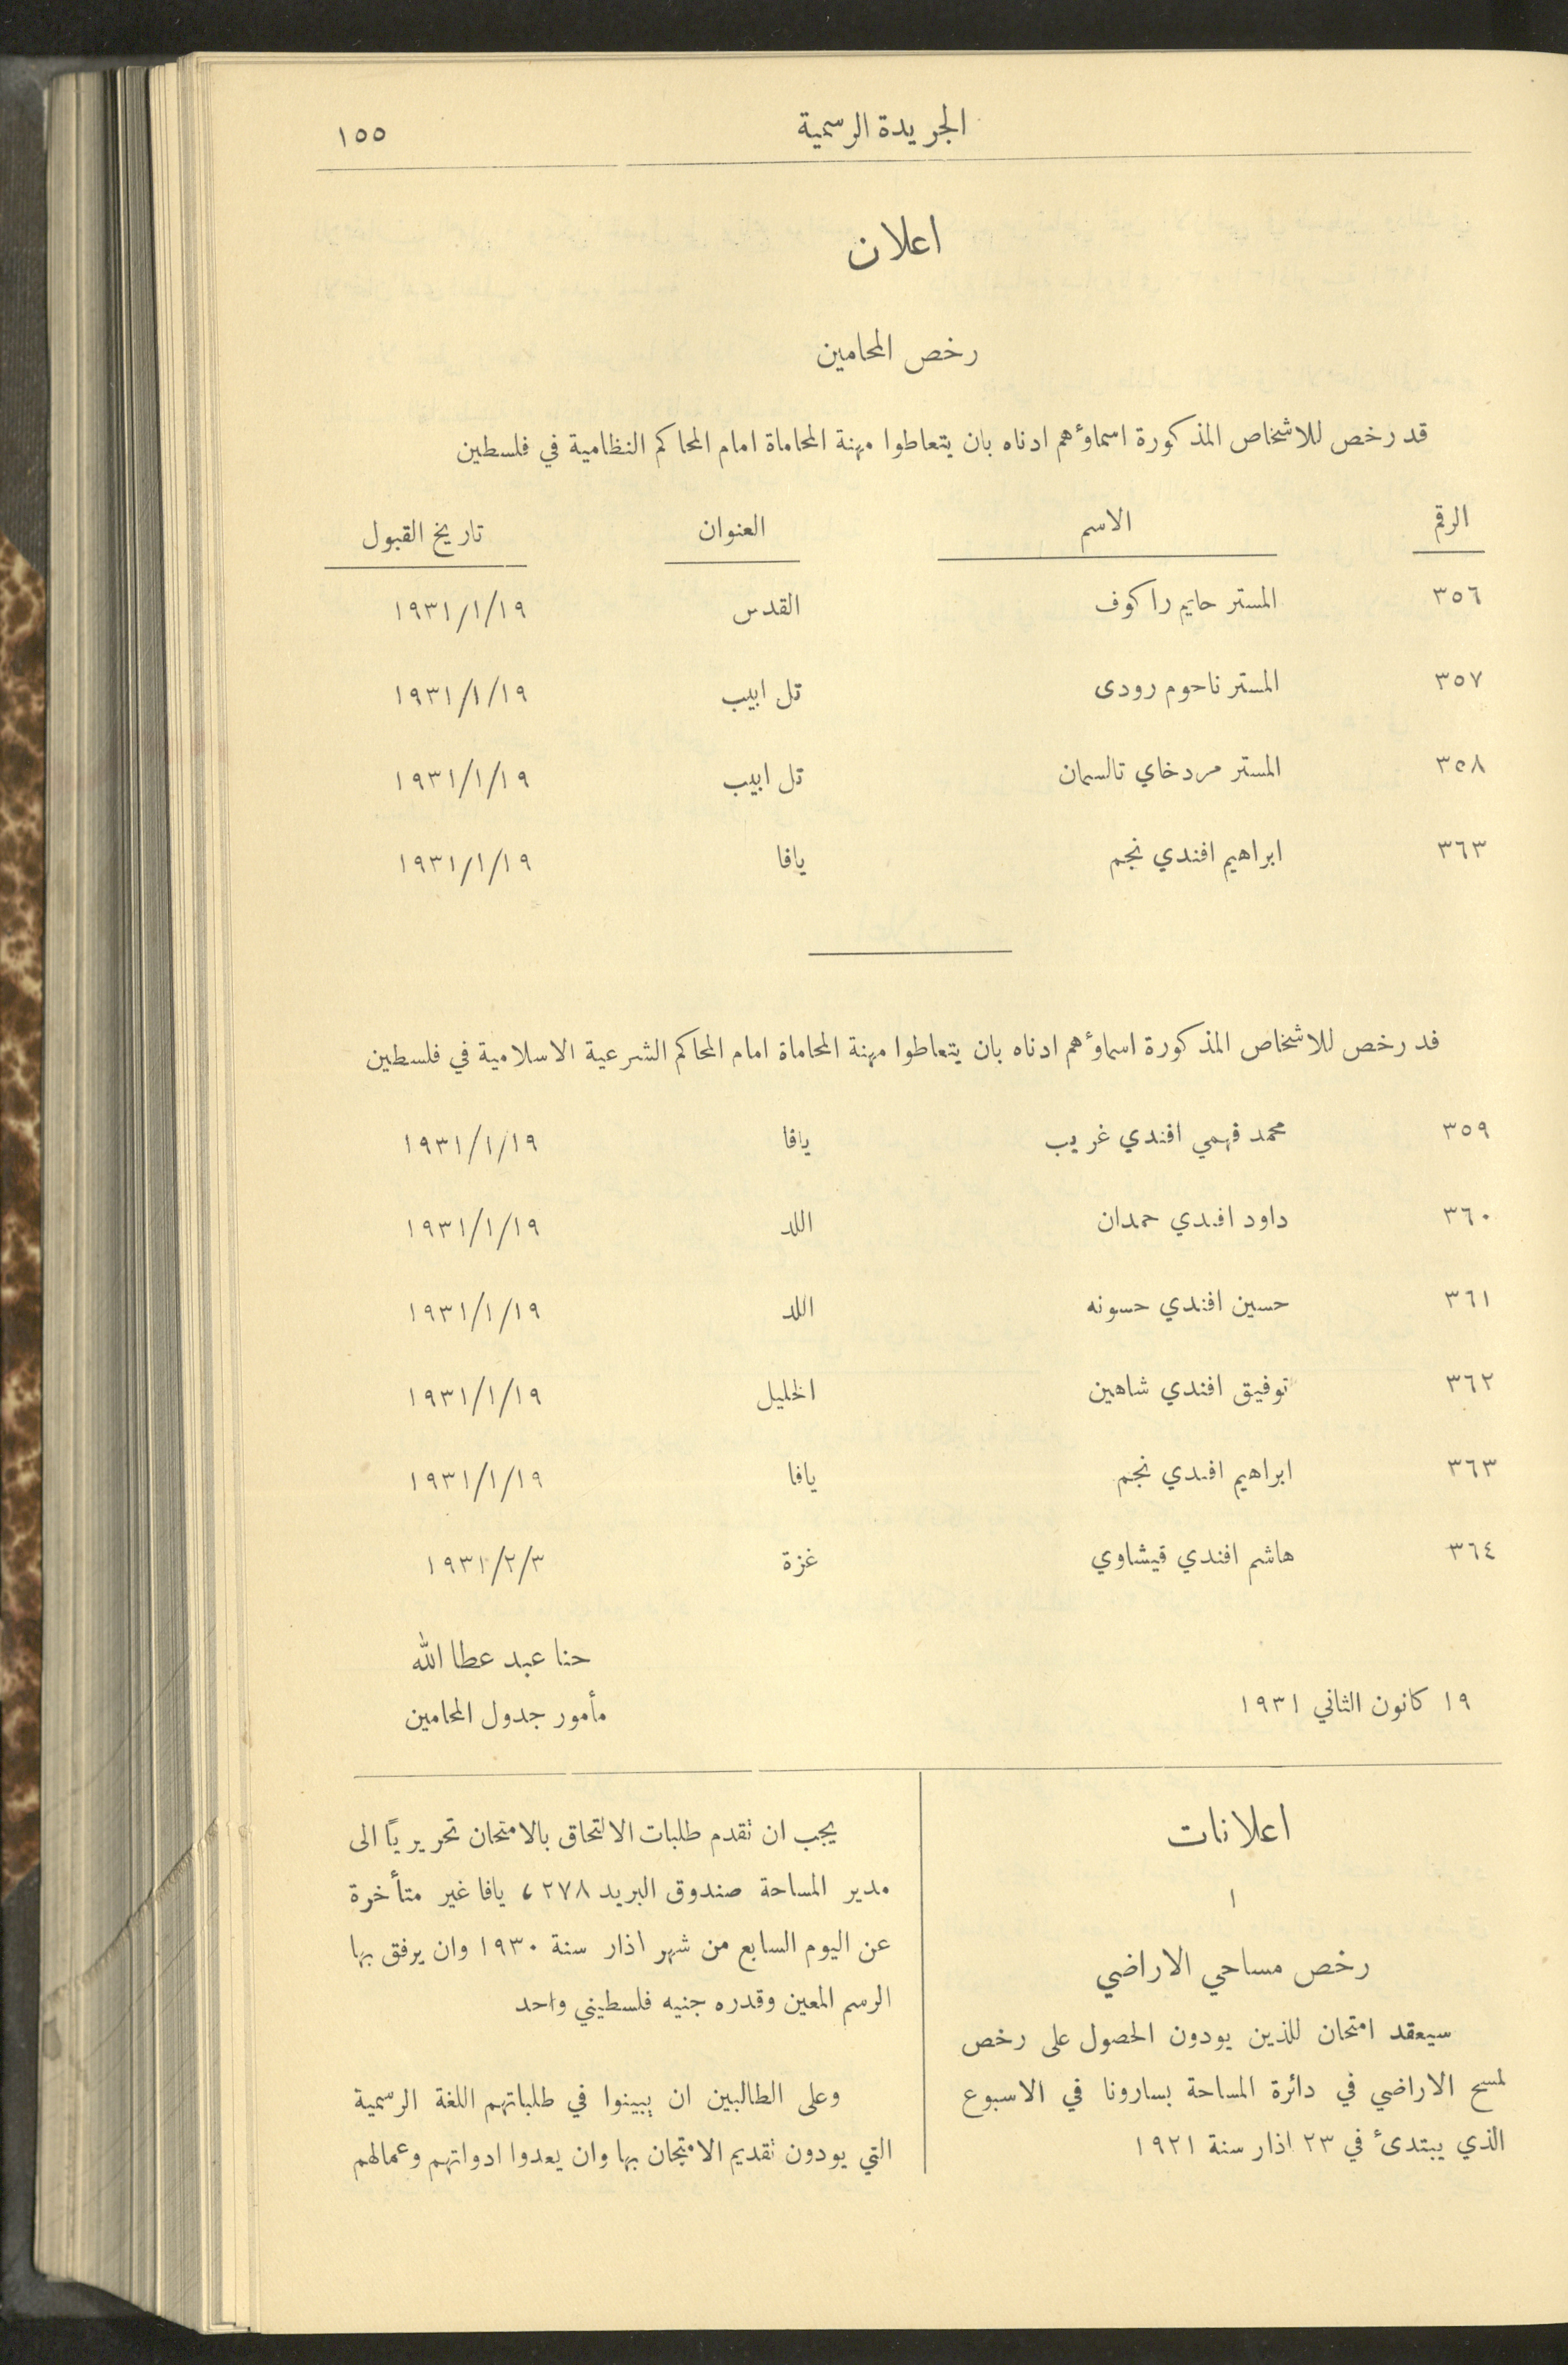 الجريدة الرسمية ١٥٥
اعلان
رخص المحامين
قد رخص للاشخاص المذكورة اسماؤهم ادناه بان يتعاطوا مهنة المحاماة امام المحاكم النظامية في فلسطين
الرقم الاسم العنوان تاريخ القبول
٣٥٦ المستر حايم راكوف القدس ١٩٣١/١/١٩
٣٥٧ المستر ناحوم رودى تل ابيب ١٩٣١/١/١٩
٣٥٨ المستر مردخاي تالسمان تل ابيب ١٩٣١/١/١٩
٣٦٣ ابراهيم افندي نجم يافا ١٩٣١/١/١٩
قد رخص للاشخاص المذكورة اسماؤهم ادناه بان يتعاطوا مهنة المحاماة امام المحاكم الشرعية الاسلامية في فلسطين
٣٥٩ محمد فهمي افندي غريب يافا ١٩٣١/١/١٩
٣٦٠ داود افندي حمدان اللد ١٩٣١/١/١٩
٣٦١ حسين افندي حسونه اللد ١٩٣١/١/١٩
٣٦٢ توفيق افندي شاهين الخليل ١٩٣١/١/١٩
٣٦٣ ابراهيم افندي نجم يافا ١٩٣١/١/١٩
٣٦٤ هاشم افندي قيشاوي غزة ١٩٣١/٢/٣
حنا عبد عطا الله
١٩ كانون الثاني ١٩٣١ مأمور جدول المحامين
اعلانات
١
رخص مساحي الاراضي
سيعقد امتحان للذين يودون الحصول على رخص
لمسح الاراضي في دائرة المساحة بسارونا في الاسبوع
الذي يبتدئ في ٢٣ اذار سنة ١٩٢١
يجب ان تقدم طلبات الالتحاق بالامتحان تحريرياً الى
مدير المساحة صندوق البريد ٢٧٨ ، يافا غير متأخرة
عن اليوم السابع من شهر اذار سنة ١٩٣٠ وان يرفق بها
الرسم المعين وقدره جنيه فلسطيني واحد
وعلى الطالبين ان يبينوا في طلباتهم اللغة الرسمية
التي يودون تقديم الامتحان بها وان يعدوا ادواتهم وعمالهم